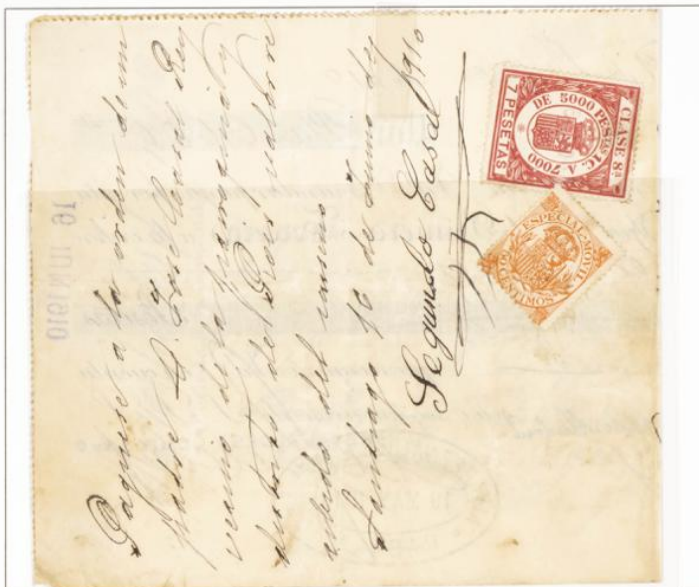 Paguese a la orden de mi
padre D. José Casal Rey
vecino de la
del Rois valor re
cibido del mismo
Santiago 16 de Junio de
1910
Segundo Casal
CLASE 8ª
DE 5000 PESTAS 1C. A 7000
7 PESETAS
ESPECIAL MOVIL
16 JUN 1910